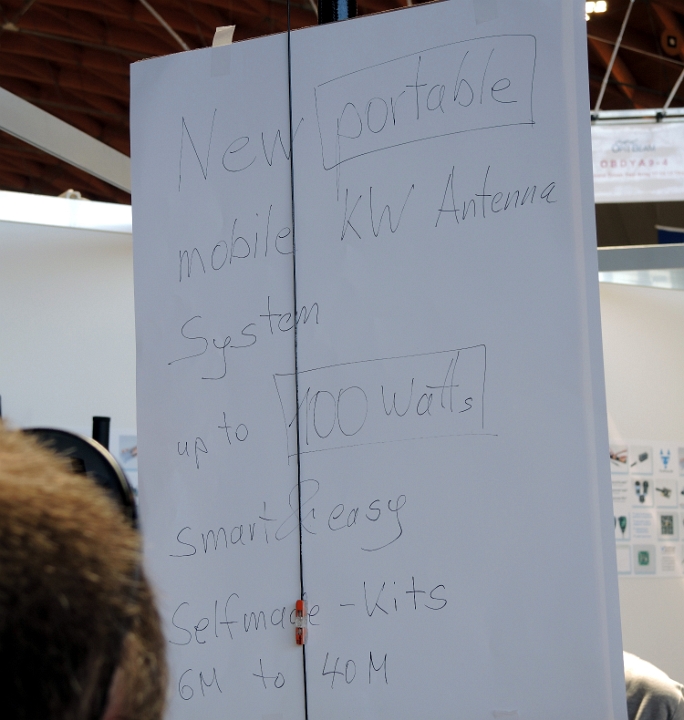 New portable
mobile KW Antenna
System
up to 100 Watts
smart & easy
Selfmade-Kits
6M to 40M